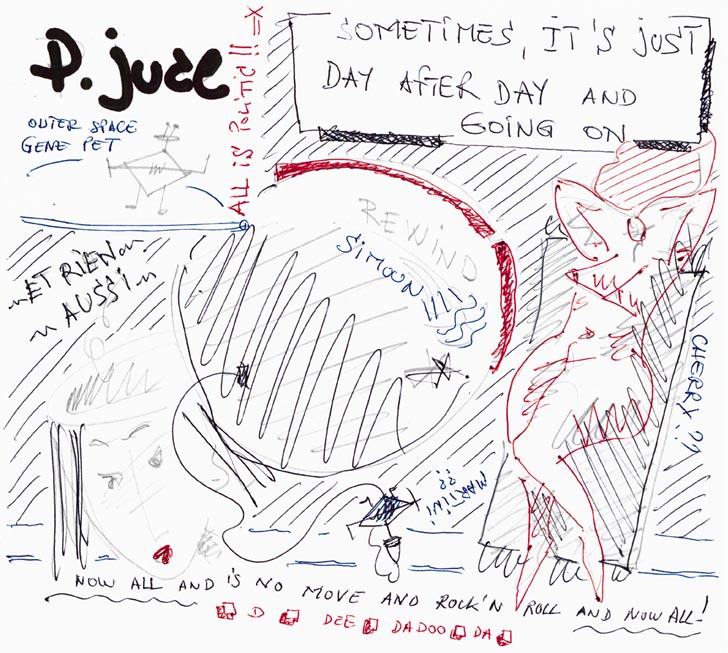 P. juce
OUTER SPACE
GENE PET
ALL IS Politic!!
SOMETIMES, IT'S JUST
DAY AFTER DAY AND
GOING ON
REWIND
SIMOON
~ET RIEN~
~AUSSI~
CHERRY?!
MARTINI
NOW ALL AND IS NO MOVE AND ROCK'N ROLL AND NOW ALL!
D DEE DADOO DA